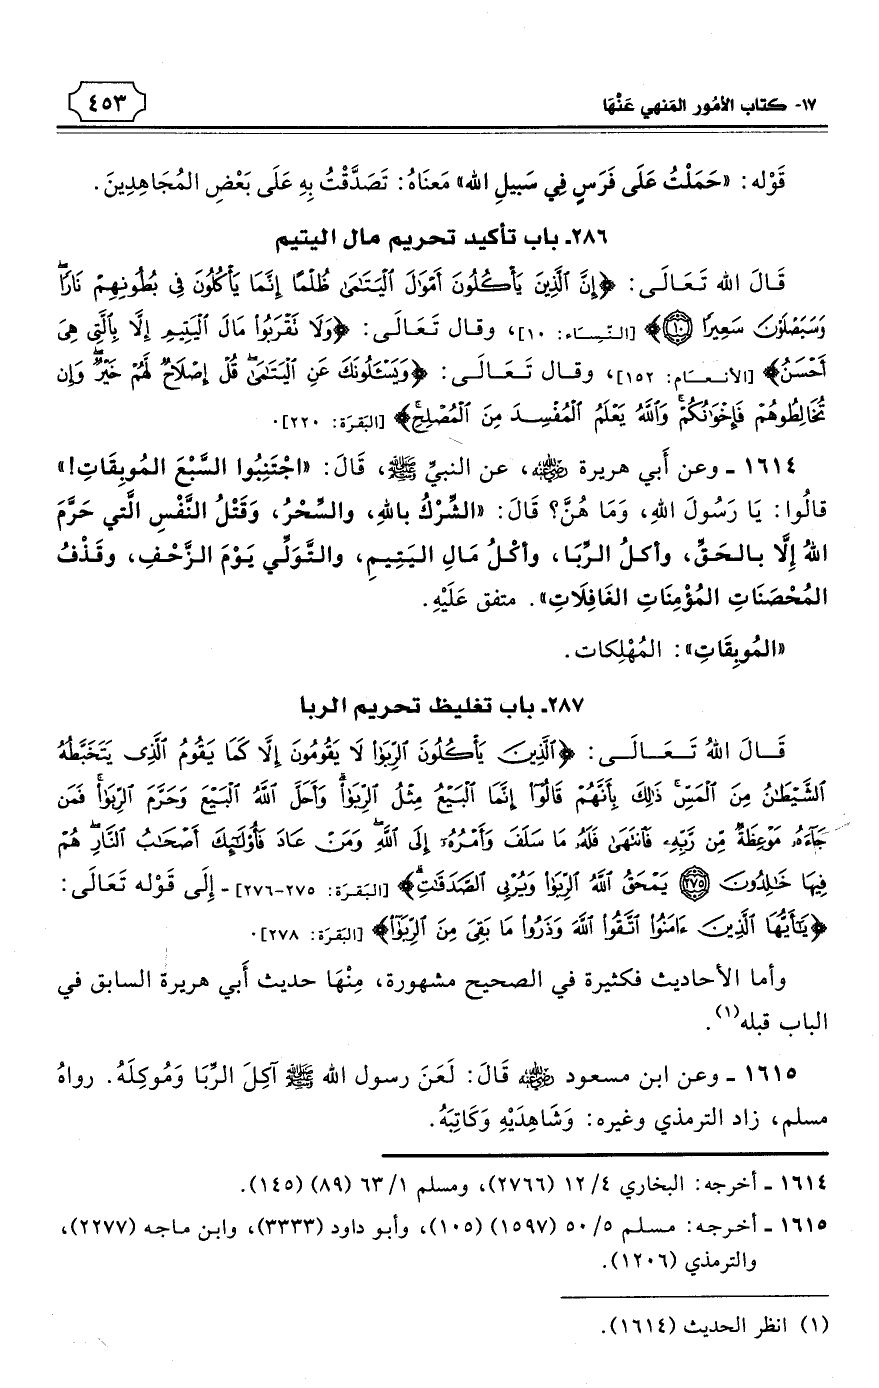 ١٧- كتاب الأمُور المَنهي عَنْهَا
٤٥٣
قَوْله: «حَمَلْتُ عَلَى فَرَسٍ فِي سَبيلِ الله» مَعنَاهُ: تَصَدَّقْتُ بِهِ عَلَى بَعْضِ المُجَاهِدِينَ.
٢٨٦ـ باب تأكيد تحريم مال اليتيم
قَالَ الله تَعَالَى: ﴿إِنَّ ٱلَّذِينَ يَأۡكُلُونَ أَمۡوَٰلَ ٱلۡيَتَٰمَىٰ ظُلۡمًا إِنَّمَا يَأۡكُلُونَ فِي بُطُونِهِمۡ نَارٗاۖ
وَسَيَصۡلَوۡنَ سَعِيرٗا ١٠﴾ [النِّسَاء: ١٠]، وقال تَعَالَى: ﴿وَلَا تَقۡرَبُواْ مَالَ ٱلۡيَتِيمِ إِلَّا بِٱلَّتِي هِيَ
أَحۡسَنُ﴾ [الأنعَام: ١٥٢]، وقال تَعَالَى: ﴿وَيَسۡـَٔلُونَكَ عَنِ ٱلۡيَتَٰمَىٰۖ قُلۡ إِصۡلَاحٞ لَّهُمۡ خَيۡرٞۖ وَإِن
تُخَالِطُوهُمۡ فَإِخۡوَٰنُكُمۡۚ وَٱللَّهُ يَعۡلَمُ ٱلۡمُفۡسِدَ مِنَ ٱلۡمُصۡلِحِۚ﴾ [البَقَرَة: ٢٢٠].
١٦١٤ ـ وعن أَبي هريرة ﵁، عن النبيِّ ﷺ، قَالَ: «اجْتَنِبُوا السَّبْعَ المُوبِقَاتِ!»
قالُوا: يَا رَسُولَ اللهِ، وَمَا هُنَّ؟ قَالَ: «الشِّرْكُ باللهِ، والسِّحْرُ، وَقَتْلُ النَّفْسِ الَّتي حَرَّمَ
اللهُ إلَّا بالحَقِّ، وأكلُ الرِّبَا، وأكْلُ مَالِ اليَتِيمِ، والتَّوَلِّي يَوْمَ الزَّحْفِ، وقَذْفُ
المُحْصَنَاتِ المُؤْمِنَاتِ الغَافِلَاتِ». متفق عَلَيْهِ.
«المُوبِقَاتِ»: المُهْلِكات.
٢٨٧ـ باب تغليظ تحريم الربا
قَالَ اللهُ تَعَالَى: ﴿ٱلَّذِينَ يَأۡكُلُونَ ٱلرِّبَوٰاْ لَا يَقُومُونَ إِلَّا كَمَا يَقُومُ ٱلَّذِي يَتَخَبَّطُهُ
ٱلشَّيۡطَٰنُ مِنَ ٱلۡمَسِّۚ ذَٰلِكَ بِأَنَّهُمۡ قَالُوٓاْ إِنَّمَا ٱلۡبَيۡعُ مِثۡلُ ٱلرِّبَوٰاْۗ وَأَحَلَّ ٱللَّهُ ٱلۡبَيۡعَ وَحَرَّمَ ٱلرِّبَوٰاْۚ فَمَن
جَآءَهُۥ مَوۡعِظَةٞ مِّن رَّبِّهِۦ فَٱنتَهَىٰ فَلَهُۥ مَا سَلَفَ وَأَمۡرُهُۥٓ إِلَى ٱللَّهِۖ وَمَنۡ عَادَ فَأُوْلَٰٓئِكَ أَصۡحَٰبُ ٱلنَّارِۖ هُمۡ
فِيهَا خَٰلِدُونَ ٢٧٥ يَمۡحَقُ ٱللَّهُ ٱلرِّبَوٰاْ وَيُرۡبِي ٱلصَّدَقَٰتِۗ﴾ [البَقَرَة: ٢٧٥-٢٧٦] - إِلَى قَوْله تَعَالَى:
﴿يَٰٓأَيُّهَا ٱلَّذِينَ ءَامَنُواْ ٱتَّقُواْ ٱللَّهَ وَذَرُواْ مَا بَقِيَ مِنَ ٱلرِّبَوٰٓاْ﴾ [البَقَرَة: ٢٧٨].
وأما الأحاديث فكثيرة في الصحيح مشهورة، مِنْهَا حديث أَبي هريرة السابق في
الباب قبله(١).
١٦١٥ ـ وعن ابن مسعود ﵁ قَالَ: لَعَنَ رسول الله ﷺ آكِلَ الرِّبَا وَمُوكِلَهُ. رواهُ
مسلم، زاد الترمذي وغيره: وَشَاهِدَيْهِ وَكَاتِبَهُ.
١٦١٤ ـ أخرجه: البخاري ٤/ ١٢ (٢٧٦٦)، ومسلم ١/ ٦٣ (٨٩) (١٤٥).
١٦١٥ ـ أخرجه: مسلم ٥/ ٥٠ (١٥٩٧) (١٠٥)، وأبو داود (٣٣٣٣)، وابن ماجه (٢٢٧٧)،
والترمذي (١٢٠٦).
(١) انظر الحديث (١٦١٤).